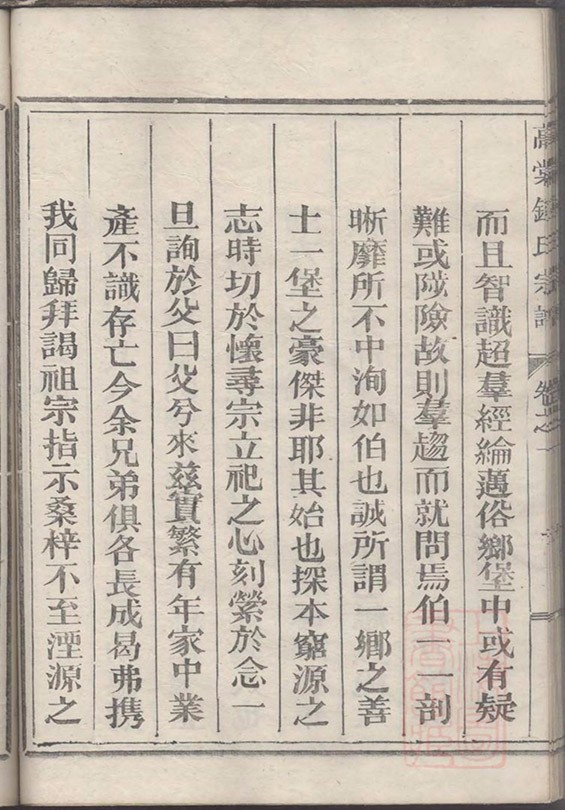 氏宗譜
而且智識超羣經綸邁俗鄉堡中或有疑
難或陂險故則羣趨而就問焉伯一一剖
晰靡所不中洵如伯也誠所謂一鄉之善
士一堡之豪傑非耶其始也探本窮源之
志時切於懷尋宗立祀之心刻縈於念一
旦詢於父曰父兮來茲實繁有年家中業
產不識存亡今余兄弟俱各長成曷弗携
我同歸拜謁祖宗指示桑梓不至湮源之